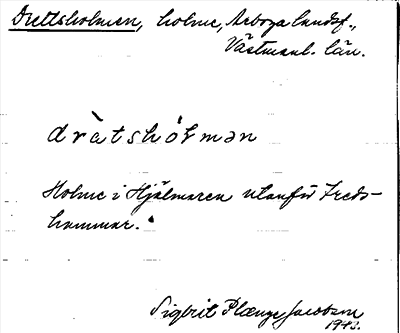 Drettsholmen, holme, Arboga landsf.,
Västmanl. län.
drètshólmən
Holme i Hjälmaren utanför Freds-
hammar.
Sigbrit Plænge Jacobson
1943.